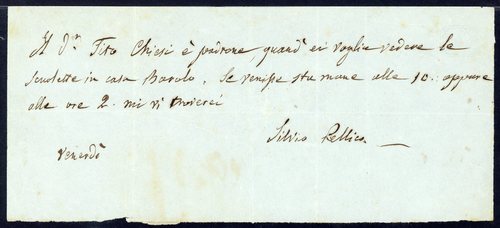 Il D.r Tito Chiesi è padrone, quand' ei voglia vedere le
scolette in casa Barolo. Se venisse sta mane alle 10. oppure
alle ore 2. mi vi troverei
Silvio Pellico
Venerdì